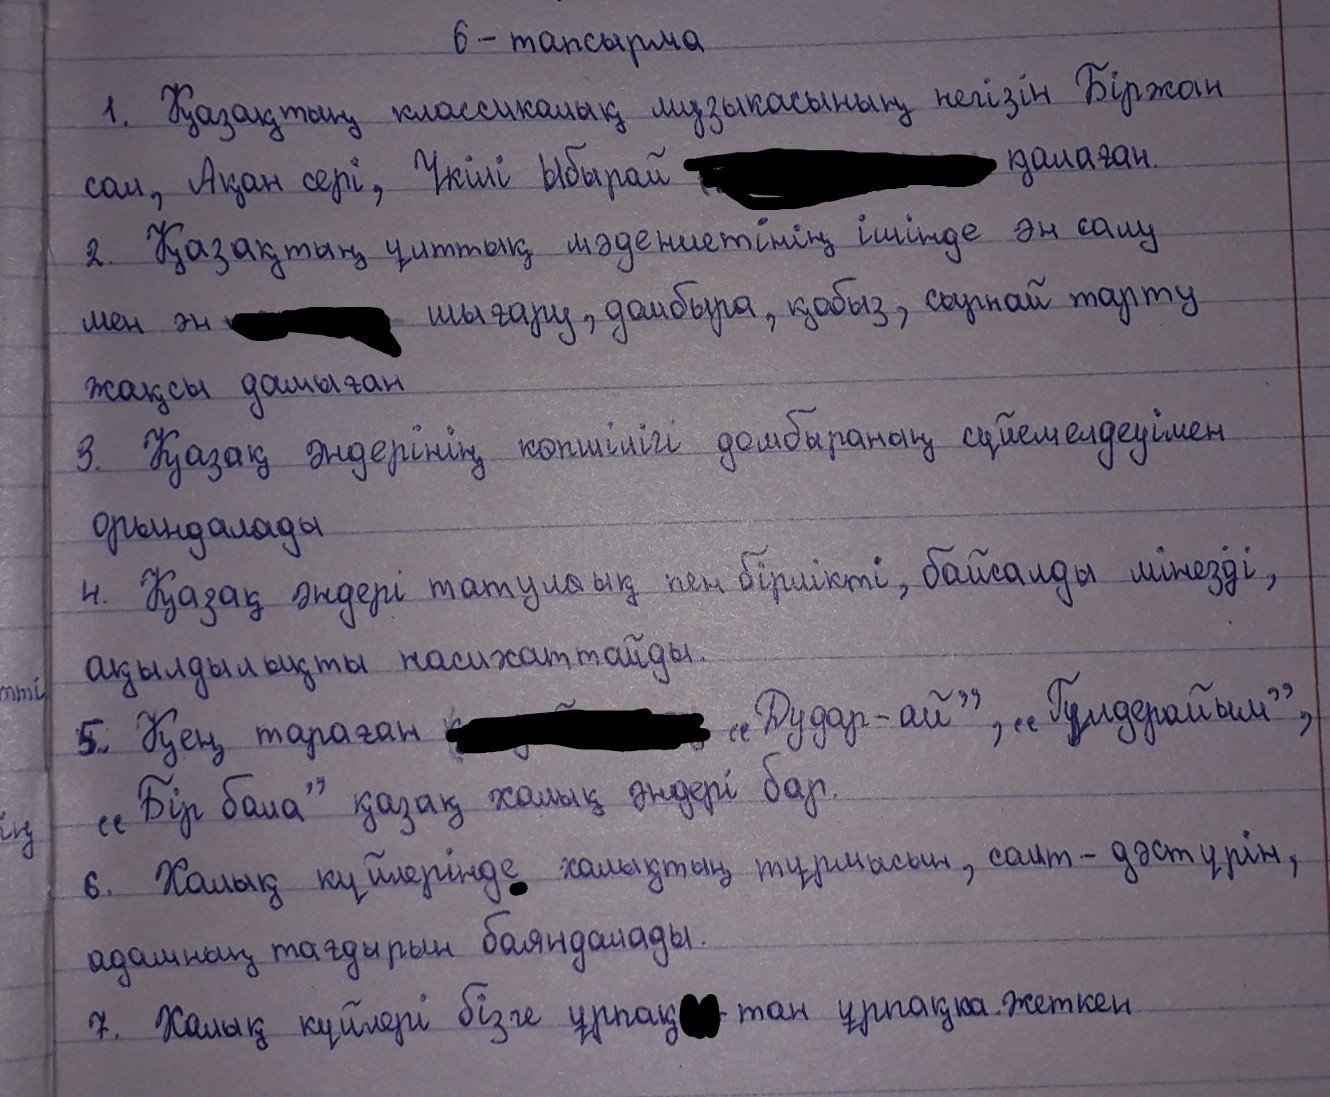 6 - тапсырма
1. Қазақтың классикалық музыкасының негізін Біржан
сал, Ақан сері, Үкілі Ыбырай қалаған.
2. Қазақтың ұлттық мәдениетінің ішінде ән салу
мен ән шығару, домбыра, қобыз, сырнай тарту
жақсы дамыған
3. Қазақ әндерінің көпшілігі домбыраның сүйемелдеуімен
орындалады
4. Қазақ әндері татулық пен бірлікті, байсалды мінезді,
ақылдылықты насихаттайды.
5. Кең тараған "Дудар-ай", "Гүлдерайым",
"Бір бала" қазақ халық әндері бар.
6. Халық күйлерінде халықтың тұрмысын, салт-дәстүрін,
адамның тағдырын баяндалады.
7. Халық күйлері бізге ұрпақ-тан ұрпаққа жеткен